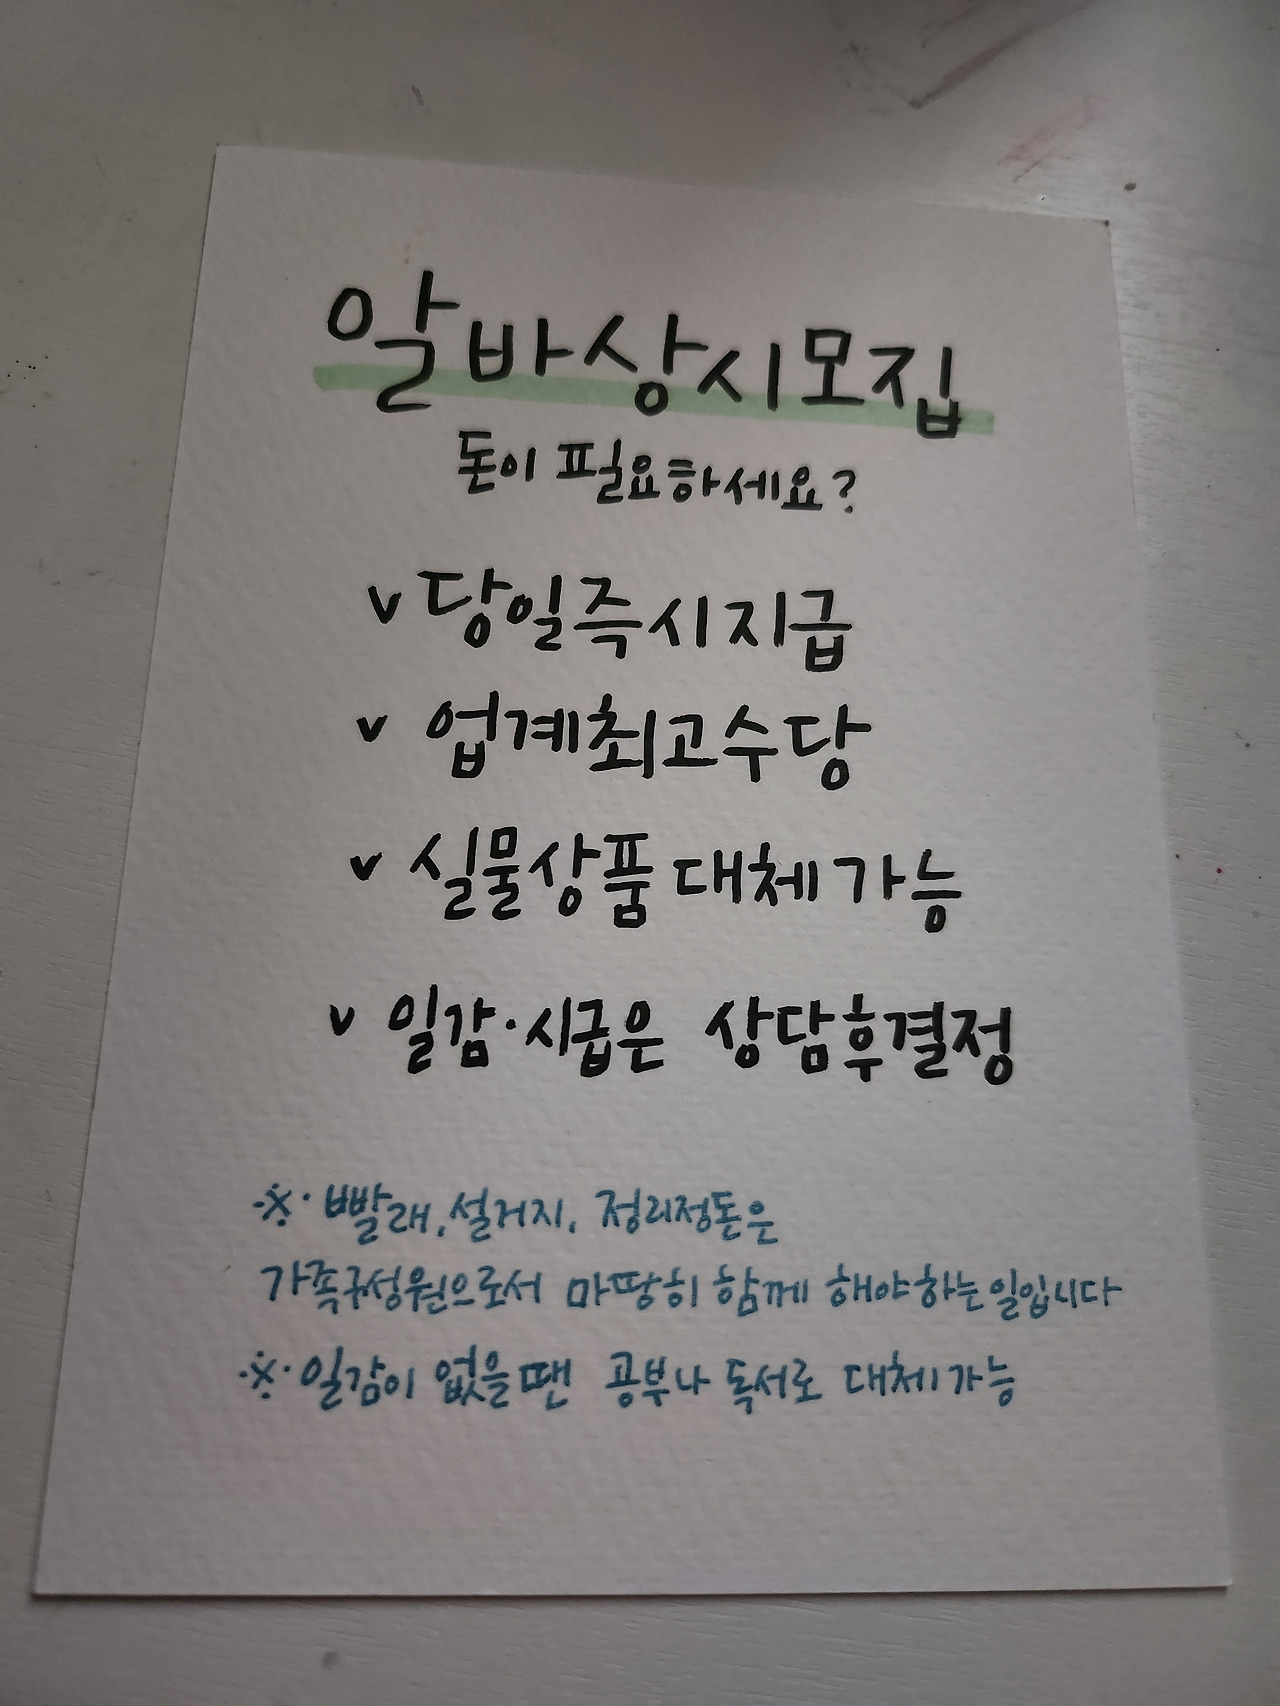 알바상시모집
돈이 필요하세요?
v 당일즉시지급
v 업계최고수당
v 실물상품 대체가능
v 일감·시급은 상담후결정
※· 빨래, 설거지, 정리정돈은
가족구성원으로서 마땅히 함께 해야하는일입니다
※· 일감이 없을땐 공부나 독서로 대체가능